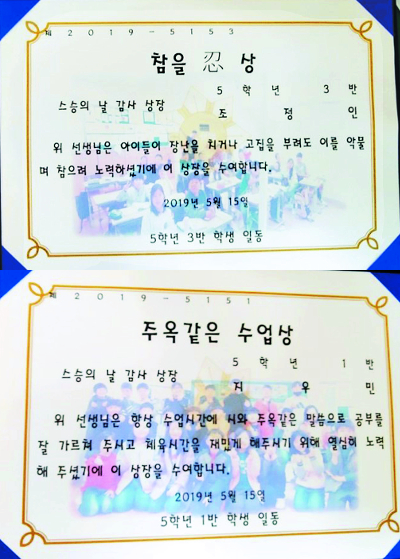 제 2019-5153
참을 忍 상
5 학 년 3 반
스승의 날 감사 상장 조 정 인
위 선생님은 아이들이 장난을 치거나 고집을 부려도 이를 악물
며 참으려 노력하셨기에 이 상장을 수여합니다.
2019년 5월 15일
5학년 3반 학생 일동
제 2019-5151
주옥같은 수업상
5 학 년 1 반
스승의 날 감사 상장 지 우 민
위 선생님은 항상 수업시간에 시와 주옥같은 말씀으로 공부를
잘 가르쳐 주시고 체육시간을 재밌게 해주시기 위해 열심히 노력
해 주셨기에 이 상장을 수여합니다.
2019년 5월 15일
5학년 1반 학생 일동